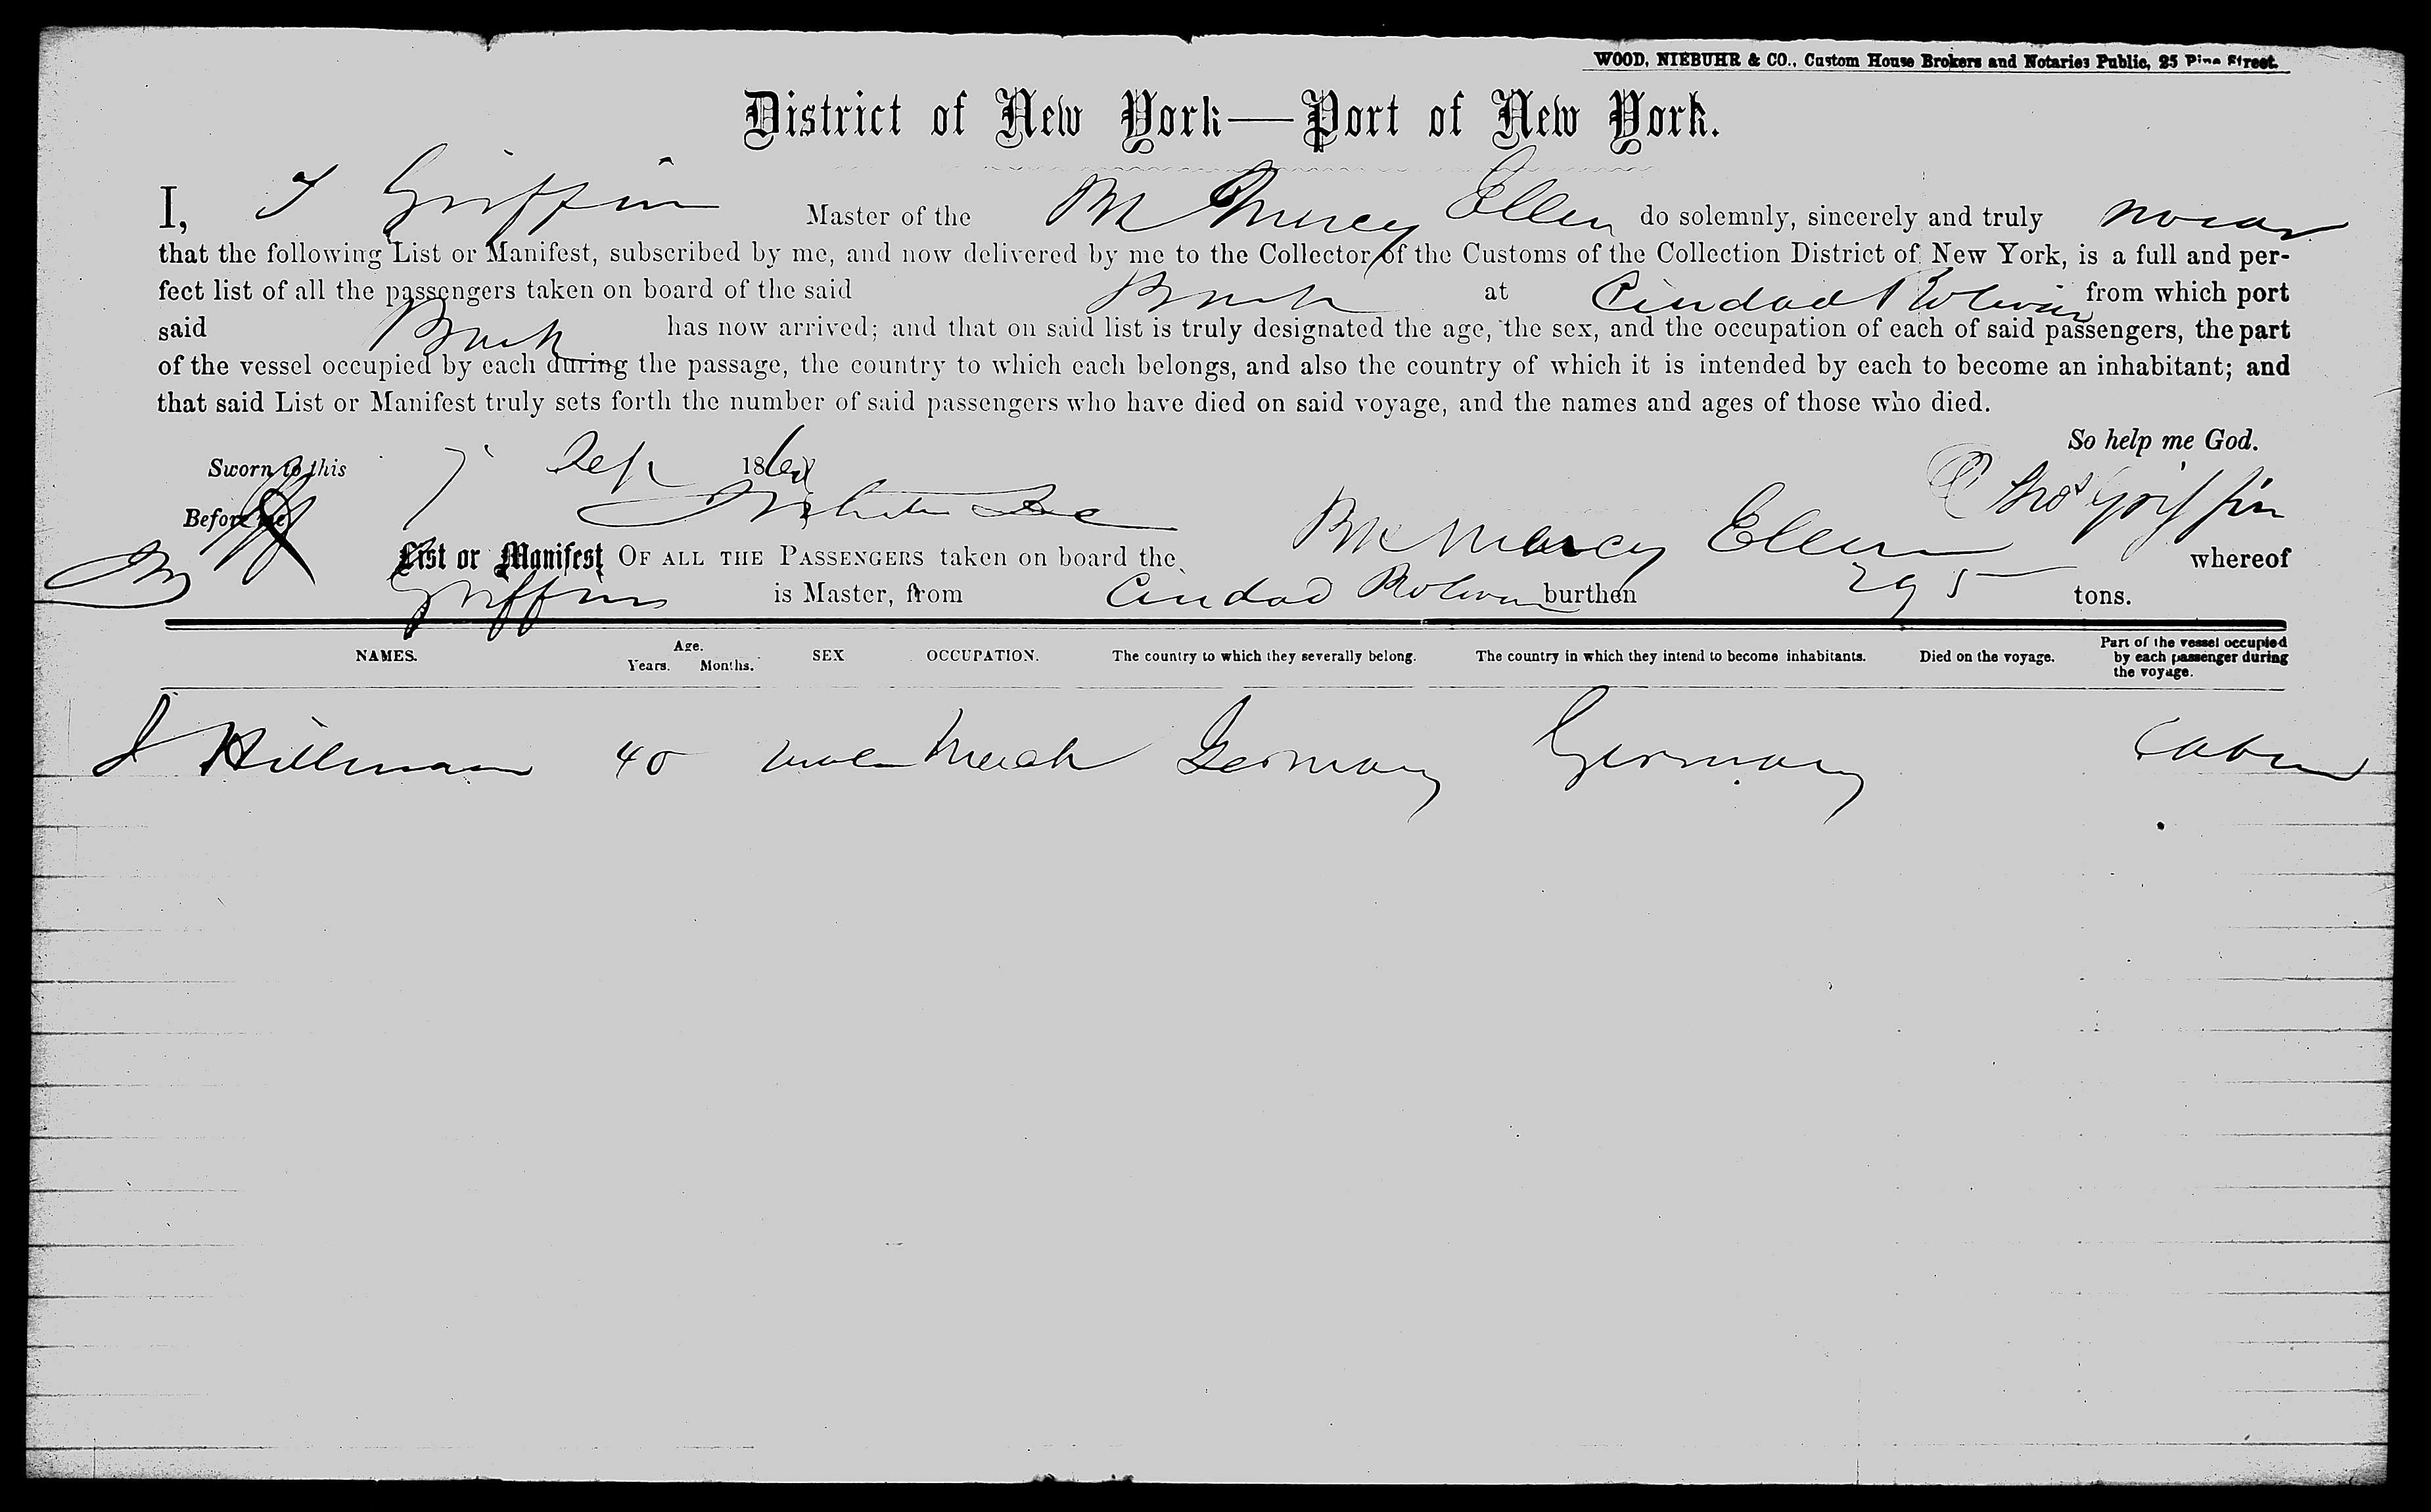 WOOD, NIEBUHR & CO., Custom House Brokers and Notaries Public, 25 Pine Street.
District of New York—Port of New York.
I, T Griffin Master of the Ellen do solemnly, sincerely and truly
that the following List or Manifest, subscribed by me, and now delivered by me to the Collector of the Customs of the Collection District of New York, is a full and per-
fect list of all the passengers taken on board of the said Bark at Ciudad Bolivar from which port
said Bark has now arrived; and that on said list is truly designated the age, the sex, and the occupation of each of said passengers, the part
of the vessel occupied by each during the passage, the country to which each belongs, and also the country of which it is intended by each to become an inhabitant; and
that said List or Manifest truly sets forth the number of said passengers who have died on said voyage, and the names and ages of those who died.
So help me God.
Sworn to this 7 Sep 186
Thos Griffin
Before me
List or Manifest OF ALL THE PASSENGERS taken on board the Ellen whereof
Griffin is Master, from Ciudad Bolivar burthen 295 tons.
NAMES. Age. Years. Months. SEX OCCUPATION. The country to which they severally belong. The country in which they intend to become inhabitants. Died on the voyage. Part of the vessel occupied by each passenger during the voyage.
J Hillman 40 male Merch Germany Germany Cabin